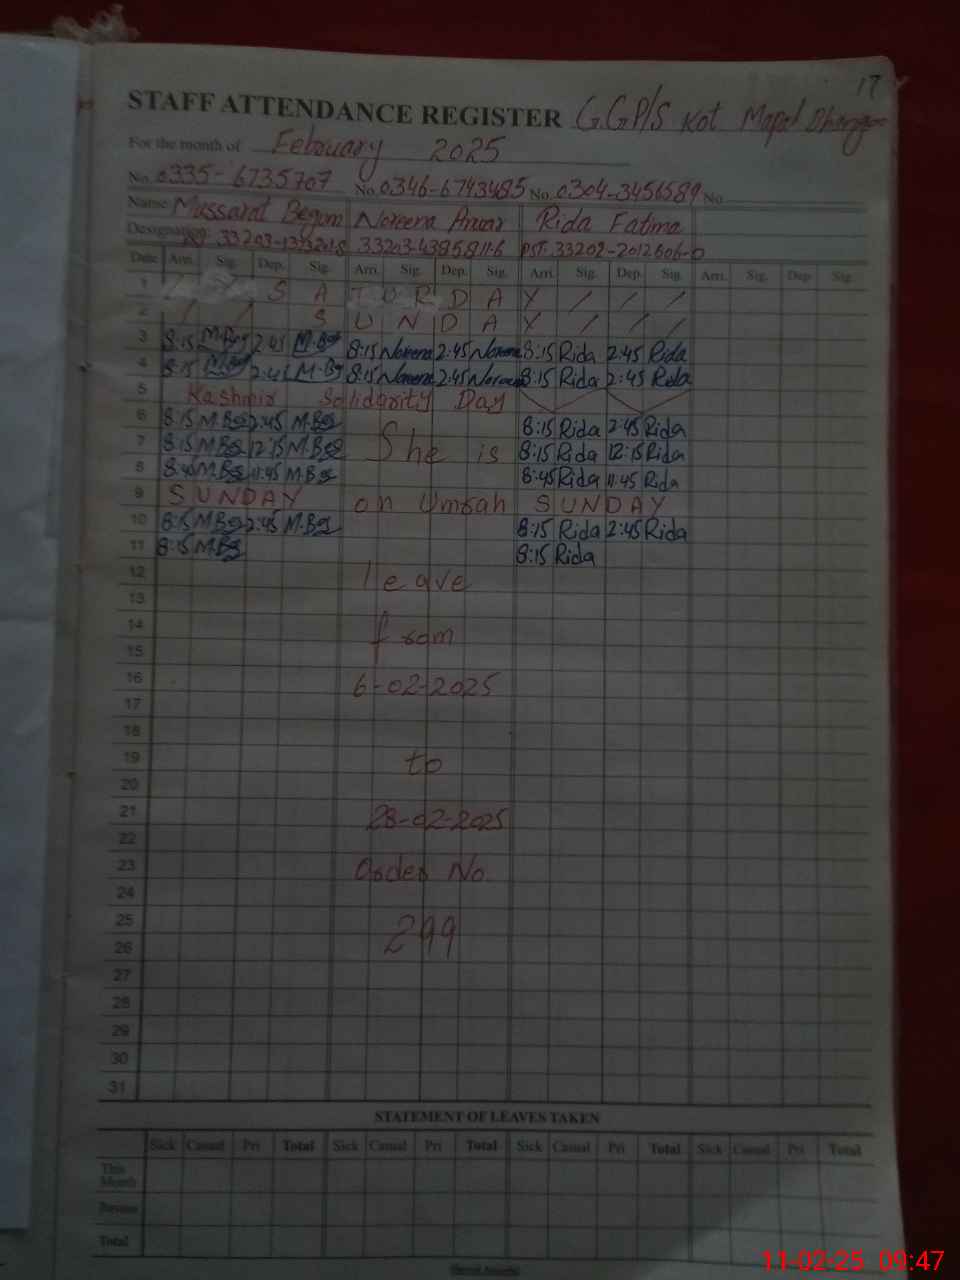 17
STAFF ATTENDANCE REGISTER G.G.P/S Kot Mapal
For the month of Febouary 2025
No. 0335-6735707 No. 0346-6743485 No. 0304-3456589 No.
Name Mussarat Begum Noreena Anwar Rida Fatima
Designation 33203-4385811-6 PST. 33202-2012606-0
Date Arri. Sig. Dep. Sig. Arri. Sig. Dep. Sig. Arri. Sig. Dep. Sig. Arri. Sig. Dep Sig.
1 / / S A T U R D A Y / / /
2 / / S U N D A Y / / /
3 8:15 M.Beg 2:45 M.Beg 8:15 Noreena 2:45 Noreena 8:15 Rida 2:45 Rida
4 8:15 M.Beg 2:45 M.Beg 8:15 Noreena 2:45 Noreena 8:15 Rida 2:45 Rida
5 Kashmir Solidarity Day
6 8:15 M.Beg 2:45 M.Beg 8:15 Rida 2:45 Rida
7 8:15 M.Beg 12:15 M.Beg She is 8:15 Rida 12:15 Rida
8 8:45 M.Beg 11:45 M.Beg 8:45 Rida 11:45 Rida
9 SUNDAY on Umrah SUNDAY
10 8:15 M.Beg 2:45 M.Beg 8:15 Rida 2:45 Rida
11 8:15 M.Beg 8:15 Rida
12 leave
13
14 from
15
16 6-02-2025
17
18
19 to
20
21 28-02-2025
22
23 Order No.
24
25 299
26
27
28
29
30
31
STATEMENT OF LEAVES TAKEN
Sick Casual Pri Total Sick Casual Pri Total Sick Casual Pri Total Sick Casual Pri Total
This Month
Total
11-02-25 09:47